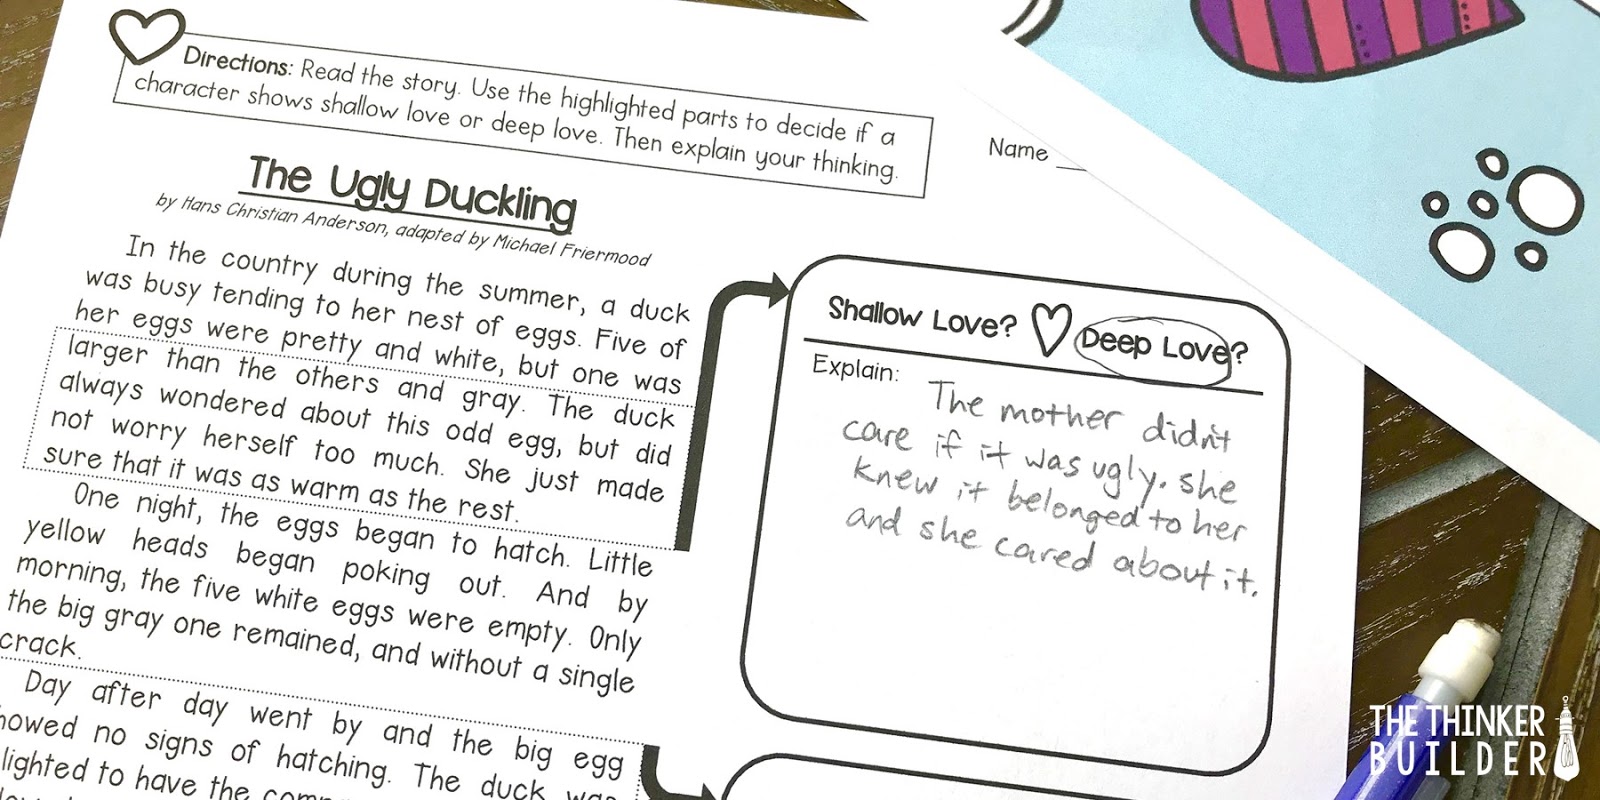 Directions: Read the story. Use the highlighted parts to decide if a
character shows shallow love or deep love. Then explain your thinking.
Name
The Ugly Duckling
by Hans Christian Anderson, adapted by Michael Friermood
In the country during the summer, a duck
was busy tending to her nest of eggs. Five of
her eggs were pretty and white, but one was
larger than the others and gray. The duck
always wondered about this odd egg, but did
not worry herself too much. She just made
sure that it was as warm as the rest.
One night, the eggs began to hatch. Little
yellow heads began poking out. And by
morning, the five white eggs were empty. Only
the big gray one remained, and without a single
crack.
Day after day went by and the big egg
howed no signs of hatching. The duck was
lighted to have the
Shallow Love? Deep Love?
Explain:
The mother didn't
care if it was ugly. she
knew it belonged to her
and she cared about it.
THE THINKER
BUILDER